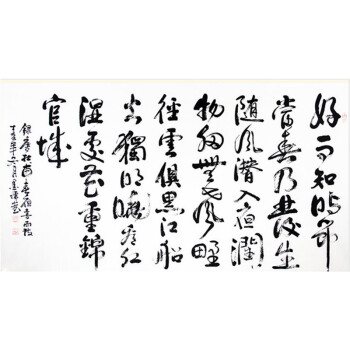 好雨知時節
當春乃發生
隨風潛入夜潤
物細無聲野
徑雲俱黑江船
火獨明曉看紅
濕處花重錦
官城
錄唐杜甫春夜喜雨
六月